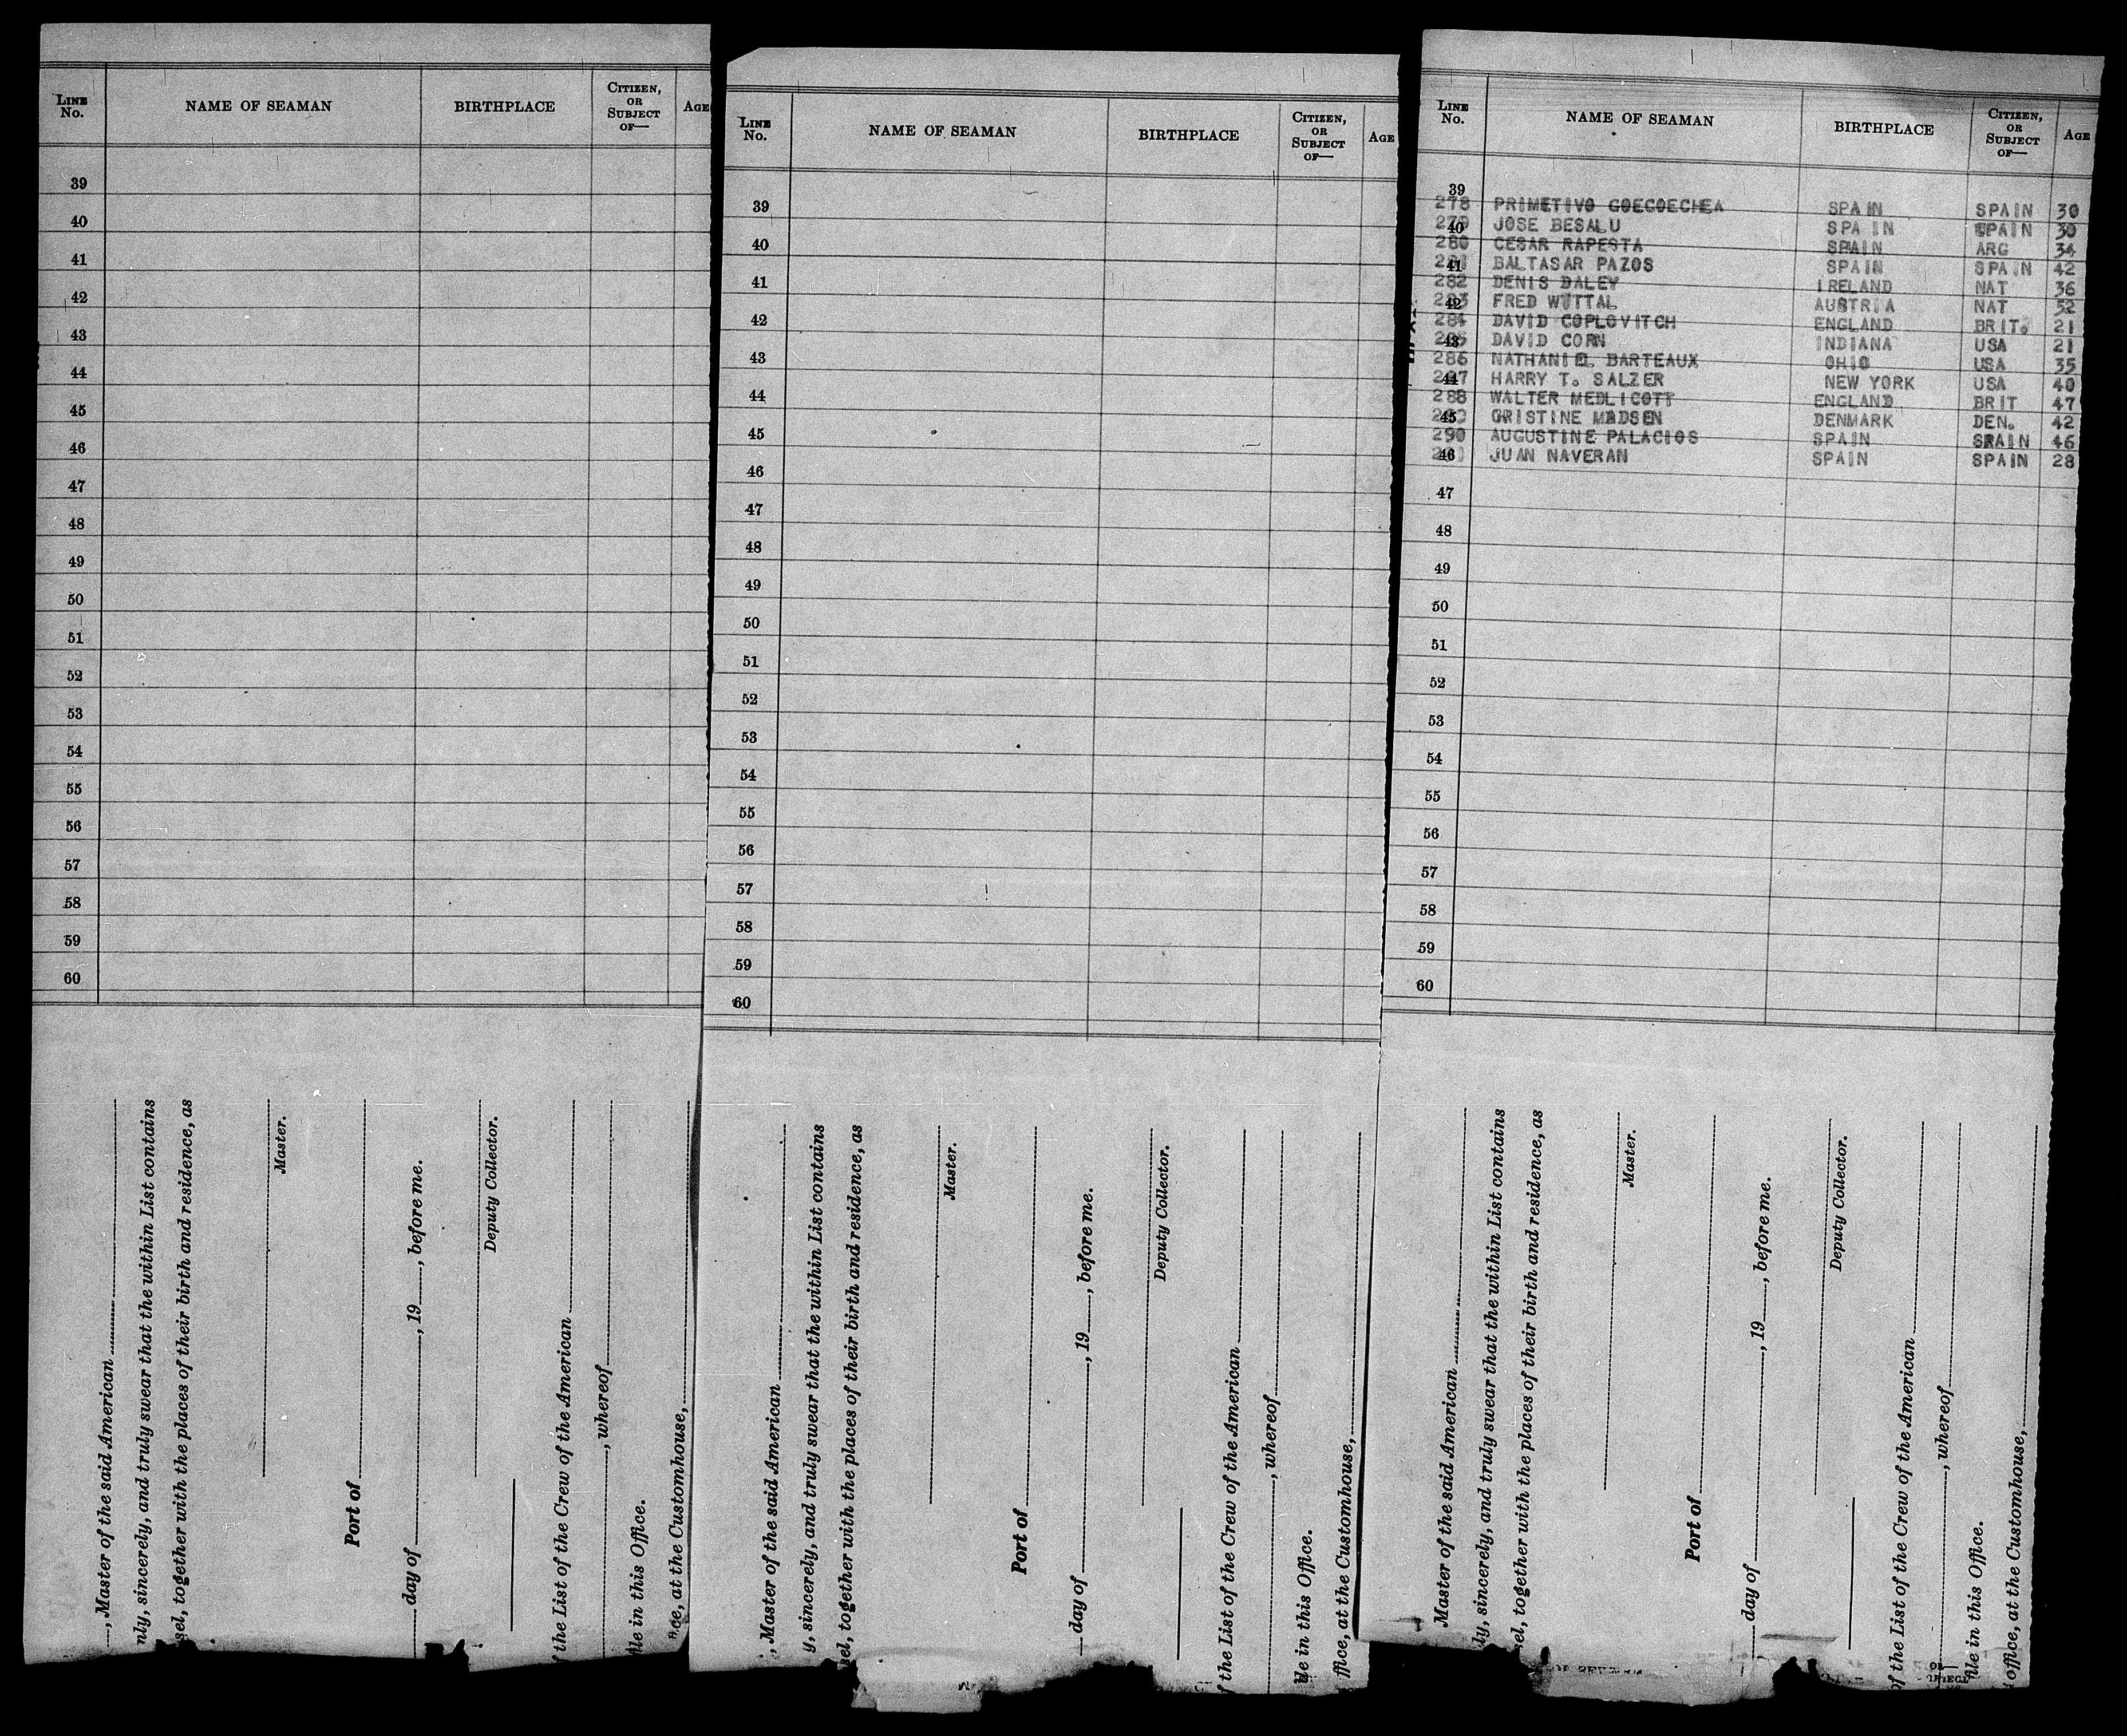 LINE No. NAME OF SEAMAN BIRTHPLACE CITIZEN, OR SUBJECT OF— AGE
39
40
41
42
43
44
45
46
47
48
49
50
51
52
53
54
55
56
57
58
59
60
, Master of the said American
nly, sincerely, and truly swear that the within List contains
sel, together with the places of their birth and residence, as
Master.
Port of
day of , 19 , before me.
Deputy Collector.
f the List of the Crew of the American
, whereof
ile in this Office.
ce, at the Customhouse,
LINE No. NAME OF SEAMAN BIRTHPLACE CITIZEN, OR SUBJECT OF— AGE
39
40
41
42
43
44
45
46
47
48
49
50
51
52
53
54
55
56
57
58
59
60
, Master of the said American
y, sincerely, and truly swear that the within List contains
sel, together with the places of their birth and residence, as
Master.
Port of
day of , 19 , before me.
Deputy Collector.
f the List of the Crew of the American
, whereof
ile in this Office.
ffice, at the Customhouse,
LINE No. NAME OF SEAMAN BIRTHPLACE CITIZEN, OR SUBJECT OF— AGE
39
278 PRIMETIVO GOECOECHEA SPAIN SPAIN 30
40 JOSE BESALU SPAIN SPAIN 30
280 CESAR RAPESTA SPAIN ARG 34
41 BALTASAR PAZOS SPAIN SPAIN 42
282 DENIS DALEY IRELAND NAT 36
42 FRED WUTTAL AUSTRIA NAT 52
284 DAVID COPLOVITCH ENGLAND BRIT. 21
43 DAVID CORN INDIANA USA 21
286 NATHANIEL BARTEAUX OHIO USA 35
44 HARRY T. SALZER NEW YORK USA 40
288 WALTER MEDLICOTT ENGLAND BRIT 47
45 CRISTINE MADSEN DENMARK DEN. 42
290 AUGUSTINE PALACIOS SPAIN SPAIN 46
46 JUAN NAVERAN SPAIN SPAIN 28
47
48
49
50
51
52
53
54
55
56
57
58
59
60
Master of the said American
ly, sincerely, and truly swear that the within List contains
sel, together with the places of their birth and residence, as
Master.
Port of
day of , 19 , before me.
Deputy Collector.
of the List of the Crew of the American
, whereof
file in this Office.
office, at the Customhouse,